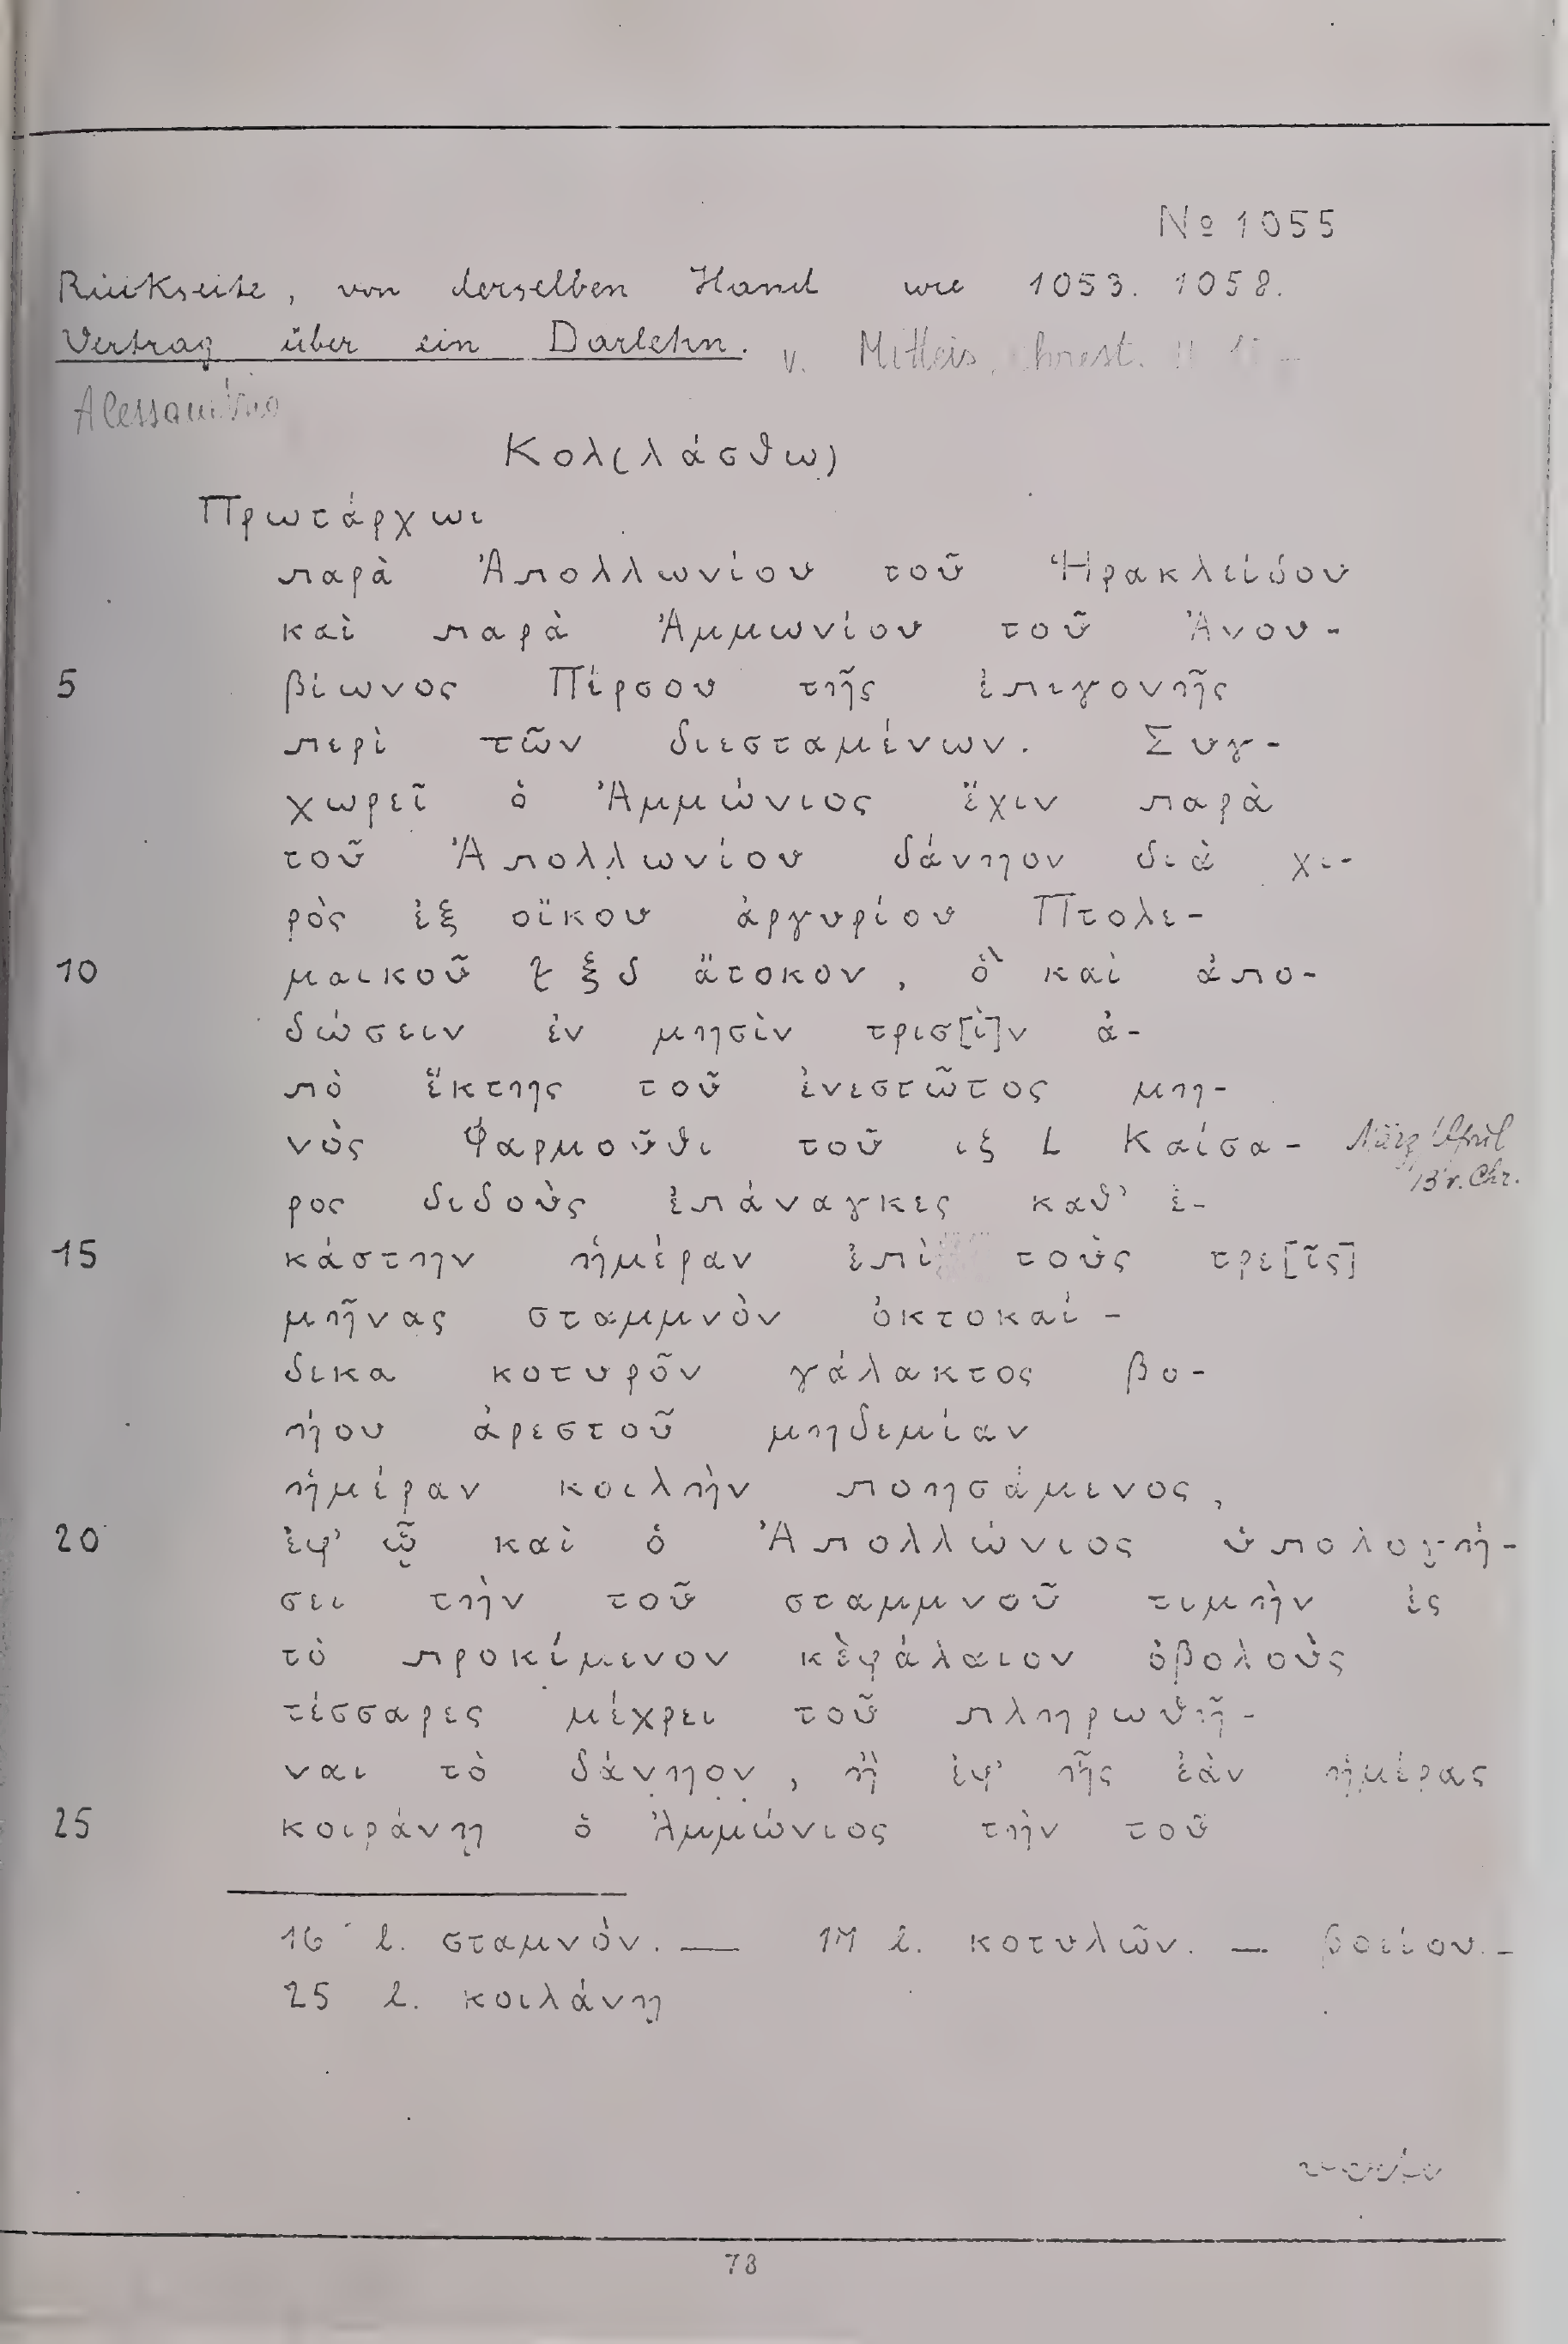 № 1055
Rückseite, von derselben Hand wie 1053. 1058.
Vertrag über ein Darlehn. v. Mitteis, Chrest. II
Alessandrino
Κολ(λάσθω)
Πρωτάρχωι
παρὰ Ἀπολλωνίου τοῦ Ἡρακλείδου
καὶ παρὰ Ἀμμωνίου τοῦ Ἀνου-
5 βίωνος Πέρσου τῆς ἐπιγονῆς
περὶ τῶν διεσταμένων. Συγ-
χωρεῖ ὁ Ἀμμώνιος ἔχιν παρὰ
τοῦ Ἀπολλωνίου δάνηον διὰ χι-
ρὸς ἐξ οἴκου ἀργυρίου Πτολε-
10 μαικοῦ ξδ ἄτοκον, ὃ καὶ ἀπο-
δώσειν ἐν μησὶν τρισ[ὶ]ν ἀ-
πὸ ἕκτης τοῦ ἐνεστῶτος μη-
νὸς Φαρμοῦθι τοῦ ιξ L Καίσα- März/April
ρος διδοὺς ἐπάναγκες καθ' ἑ- 13 v. Chr.
15 κάστην ἡμέραν ἐπὶ τοὺς τρε[ῖς]
μῆνας σταμμνὸν ὀκτοκαί-
δικα κοτυρῶν γάλακτος βο-
ήου ἀρεστοῦ μηδεμίαν
ἡμέραν κοιλὴν ποησάμενος,
20 ἐφ' ᾧ καὶ ὁ Ἀπολλώνιος ὑπολογή-
σει τὴν τοῦ σταμμνοῦ τιμὴν ἐς
τὸ προκίμενον κεφάλαιον ὀβολοὺς
τέσσαρες μέχρει τοῦ πληρωθῆ-
ναι τὸ δάνηον, ἢ ἐφ' ἧς ἐὰν ἡμέρας
25 κοιράνῃ ὁ Ἀμμώνιος τὴν τοῦ
16 l. σταμνόν. — 17 l. κοτυλῶν. — βοείου. —
25 l. κοιλάνῃ
78